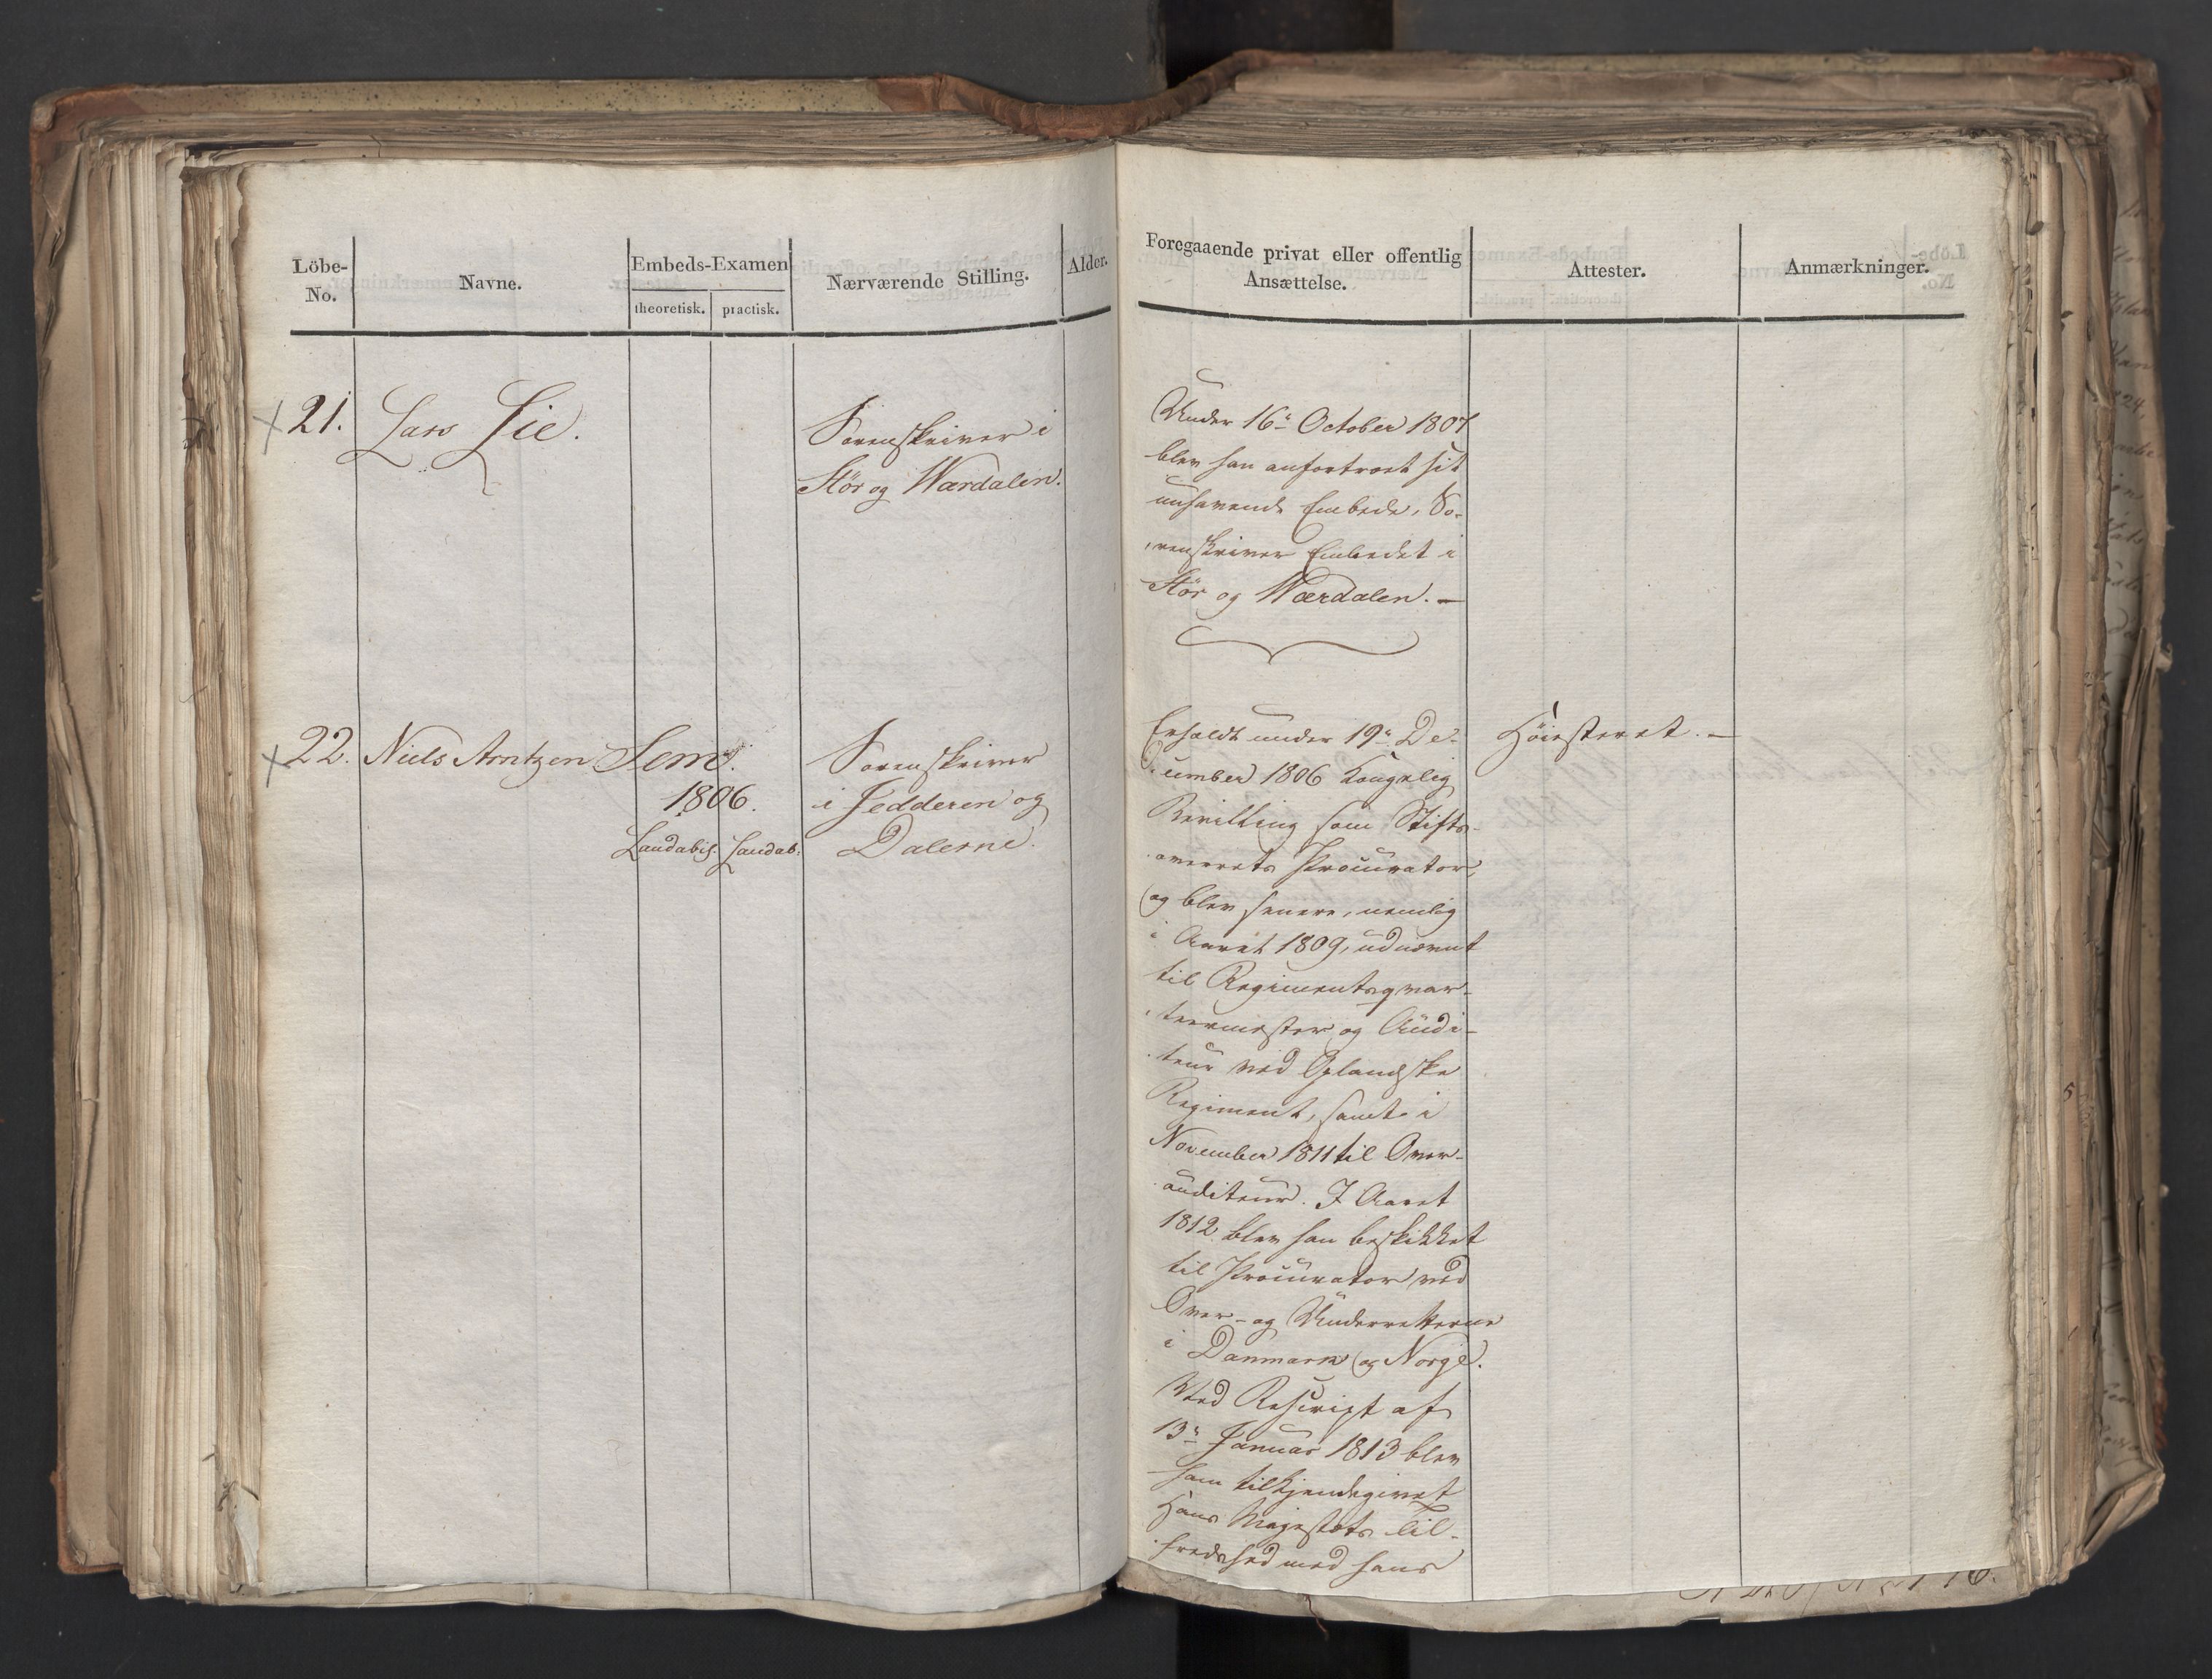 Löbe-No.
Navne.
Embeds-Examen
theoretisk.
practisk.
Nærværende Stilling.
Alder.
Foregaaende privat eller offentlig
Ansættelse.
Attester.
Anmærkninger.
21.
Lars Lie.
Sorenskriver i
Stör og Wærdalen.
Under 16de October 1807
blev han anfortroet sit
nuhavende Embede, So-
renskriver Embedet i
Stör og Wærdalen. —
22. Niels Arntzen Sem.
1806.
Laudabil. Laudab:
Sorenskriver
i Jedderen og
Dalerne.
Erholdt under 19de De-
cember 1806 Kongelig
Bevilling som Stifts-
overrets Procurator,
og blev senere, nemlig
i Aaret 1809, udnævnt
til Regimentsqvar-
teermester og Audi-
teur ved Oplandske
Regiment, samt i
November 1811 til Over-
auditeur. I Aaret
1812 blev han beskikket
til Procurator ved
Over- og Underretterne
i Danmark og Norge.
Ved Rescript af
13de Januar 1813 blev
ham tilkjendegivet
Hans Majestæts Til-
fredshed med hans
Höiesteret. —